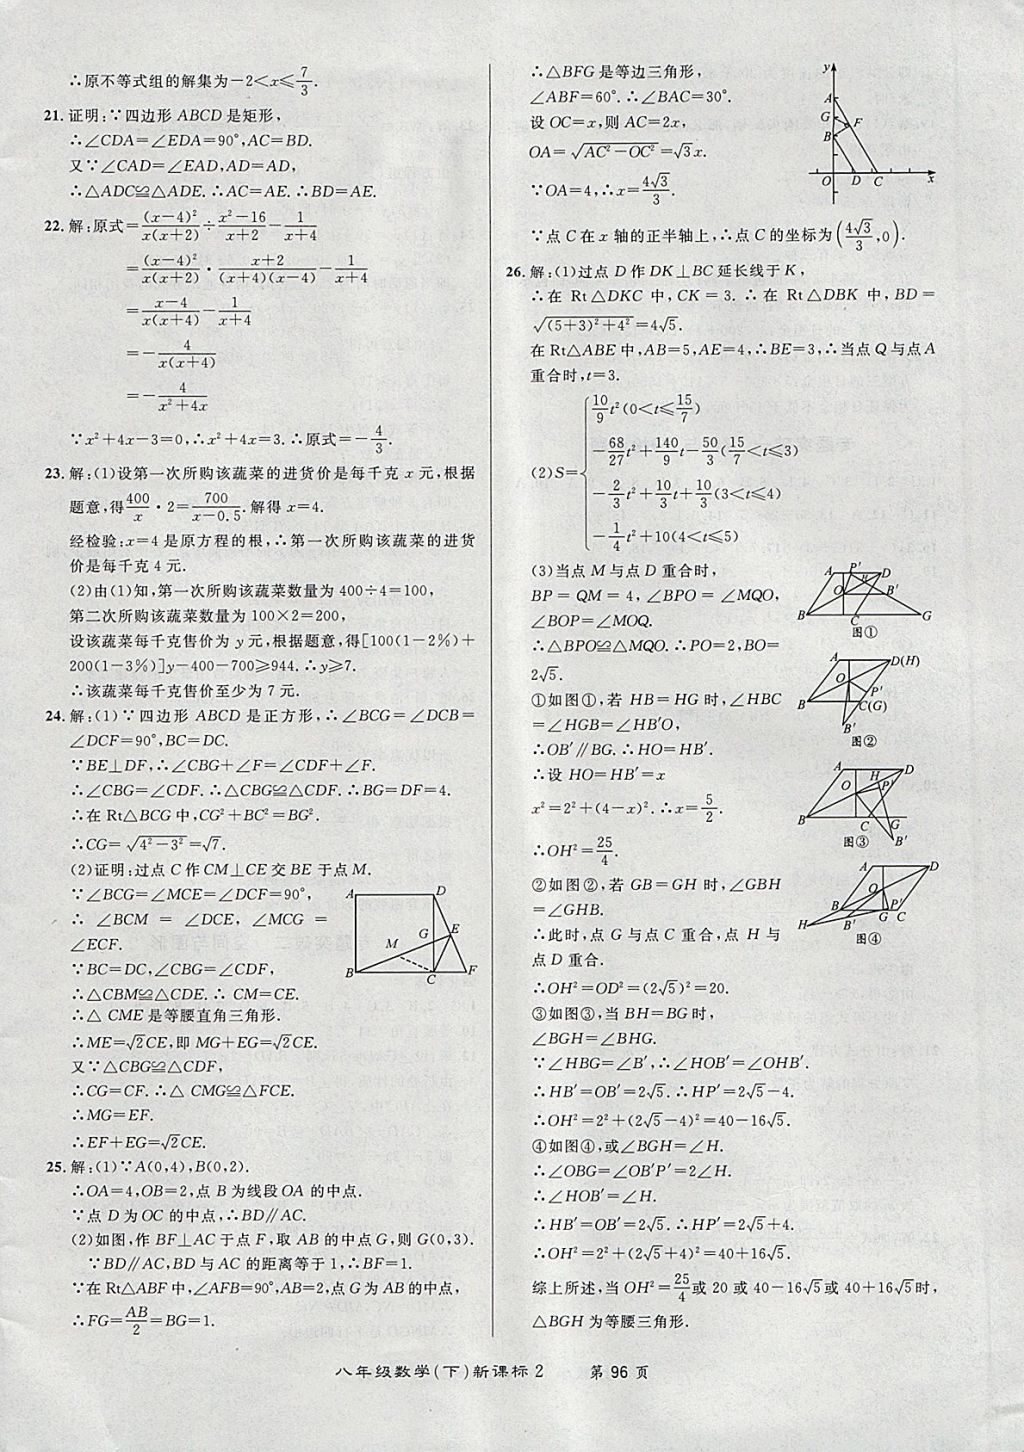 ∴原不等式组的解集为-2<x≤7/3.
21.证明:∵四边形 ABCD 是矩形,
∴∠CDA=∠EDA=90°,AC=BD.
又∵∠CAD=∠EAD,AD=AD,
∴△ADC≌△ADE.∴AC=AE.∴BD=AE.
22.解:原式=(x-4)²/x(x+2)÷x²-16/x+2-1/x+4
=(x-4)²/x(x+2)·x+2/(x+4)(x-4)-1/x+4
=x-4/x(x+4)-1/x+4
=-4/x(x+4)
=-4/x²+4x
∵x²+4x-3=0,∴x²+4x=3.∴原式=-4/3.
23.解:(1)设第一次所购该蔬菜的进货价是每千克 x 元,根据
题意,得400/x·2=700/x-0.5.解得 x=4.
经检验:x=4 是原方程的根,∴第一次所购该蔬菜的进货
价是每千克 4 元.
(2)由(1)知,第一次所购该蔬菜数量为 400÷4=100,
第二次所购该蔬菜数量为 100×2=200,
设该蔬菜每千克售价为 y 元,根据题意,得[100(1-2%)+
200(1-3%)]y-400-700≥944.∴y≥7.
∴该蔬菜每千克售价至少为 7 元.
24.解:(1)∵四边形 ABCD 是正方形,∴∠BCG=∠DCB=
∠DCF=90°,BC=DC.
∵BE⊥DF,∴∠CBG+∠F=∠CDF+∠F.
∴∠CBG=∠CDF.∴△CBG≌△CDF.∴BG=DF=4.
∴在 Rt△BCG 中,CG²+BC²=BG².
∴CG=√4²-3²=√7.
(2)证明:过点 C 作 CM⊥CE 交 BE 于点 M.
∵∠BCG=∠MCE=∠DCF=90°,
∴ ∠BCM = ∠DCE, ∠MCG =
∠ECF.
∵BC=DC,∠CBG=∠CDF,
∴△CBM≌△CDE.∴ CM=CE.
∴△ CME 是等腰直角三角形.
∴ME=√2CE,即 MG+EG=√2CE.
又∵△CBG≌△CDF,
∴CG=CF.∴△ CMG≌△FCE.
∴MG=EF.
∴EF+EG=√2CE.
A D G E M B C F
25.解:(1)∵A(0,4),B(0,2).
∴OA=4,OB=2,点 B 为线段 OA 的中点.
∵点 D 为 OC 的中点,∴BD∥AC.
(2)如图,作 BF⊥AC 于点 F,取 AB 的中点 G,则 G(0,3).
∵BD∥AC,BD 与 AC 的距离等于 1,∴BF=1.
∵在 Rt△ABF 中,∠AFB=90°,AB=2,点 G 为 AB 的中点,
∴FG=AB/2=BG=1.
∴△BFG 是等边三角形,
∠ABF=60°.∴∠BAC=30°.
设 OC=x,则 AC=2x,
OA=√AC²-OC²=√3x.
∵OA=4,∴x=4√3/3.
∵点 C 在 x 轴的正半轴上,∴点 C 的坐标为(4√3/3,0).
y A G F B O D C x
26.解:(1)过点 D 作 DK⊥BC 延长线于 K,
∴在 Rt△DKC 中,CK=3.∴在 Rt△DBK 中,BD=
√(5+3)²+4²=4√5.
在 Rt△ABE 中,AB=5,AE=4,∴BE=3,∴当点 Q 与点 A
重合时,t=3.
(2)S=
10/9t²(0<t≤15/7)
-68/27t²+140/9t-50/3(15/7<t≤3)
-2/3t²+10/3t+10/3(3<t≤4)
-1/4t²+10(4<t≤5)
(3)当点 M 与点 D 重合时,
BP=QM=4,∠BPO=∠MQO,
∠BOP=∠MOQ.
∴△BPO≌△MQO.∴PO=2,BO=
2√5.
①如图①,若 HB=HG 时,∠HBC
=∠HGB=∠HB′O,
∴OB′∥BG.∴HO=HB′.
∴设 HO=HB′=x
x²=2²+(4-x)².∴x=5/2.
∴OH²=25/4.
②如图②,若 GB=GH 时,∠GBH
=∠GHB.
∴此时,点 G 与点 C 重合,点 H 与
点 D 重合.
∴OH²=OD²=(2√5)²=20.
③如图③,当 BH=BG 时,
∠BGH=∠BHG.
∵∠HBG=∠B′,∴∠HOB′=∠OHB′.
∴HB′=OB′=2√5.∴HP′=2√5-4.
∴OH²=2²+(2√5-4)²=40-16√5.
④如图④,或∠BGH=∠H.
∴∠OBG=∠OB′P′=∠H.
∴∠HOB′=∠H.
∴HB′=OB′=2√5.∴HP′=2√5+4.
∴OH²=2²+(2√5+4)²=40+16√5.
综上所述,当 OH²=25/4或 20 或 40-16√5或 40+16√5时,
△BGH 为等腰三角形.
A P′ D H O B′ B C G
图①
A D(H) O P′ B C(G) B′
图②
A H D P′ O B C G B′
图③
A D O B P′ H G C
图④
八年级数学(下)新课标 2 第 96 页